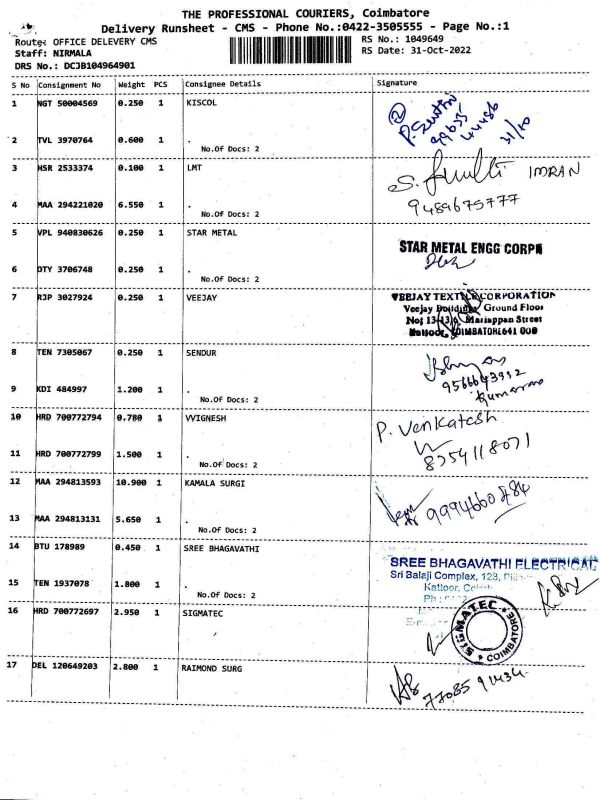 THE PROFESSIONAL COURIERS, Coimbatore
Delivery Runsheet - CMS - Phone No.:0422-3505555 - Page No.:1
Route: OFFICE DELEVERY CMS
RS No.: 1049649
Staff: NIRMALA
RS Date: 31-Oct-2022
DRS No.: DCJB104964901
S No Consignment No Weight PCS Consignee Details Signature
1 NGT 50004569 0.250 1 KISCOL
31/10
2 TVL 3970764 0.600 1 .
No.Of Docs: 2
3 HSR 2533374 0.100 1 LMT
IMRAN
4 MAA 294221020 6.550 1 .
9489675777
No.Of Docs: 2
5 VPL 940830626 0.250 1 STAR METAL
STAR METAL ENGG CORPN
6 DTY 3706748 0.250 1 .
No.Of Docs: 2
7 RJP 3027924 0.250 1 VEEJAY
VEEJAY TEXTILE CORPORATION
Veejay Buildings Ground Floor
Mariappan Street
Kattoor, COIMBATORE 641 009
8 TEN 7305067 0.250 1 SENDUR
9 KDI 484997 1.200 1 .
No.Of Docs: 2
10 HRD 700772794 0.780 1 VVIGNESH
P. Venkatesh
11 HRD 700772799 1.500 1 .
8754118071
No.Of Docs: 2
12 MAA 294813593 10.900 1 KAMALA SURGI
13 MAA 294813131 5.650 1 .
No.Of Docs: 2
14 BTU 178989 0.450 1 SREE BHAGAVATHI
SREE BHAGAVATHI ELECTRICAL
Sri Balaji Complex, 123,
15 TEN 1937078 1.800 1 .
Kattoor,
No.Of Docs: 2
16 HRD 700772697 2.950 1 SIGMATEC
SIGMATEC
COIMBATORE
17 DEL 120649203 2.800 1 RAIMOND SURG
77085 91434